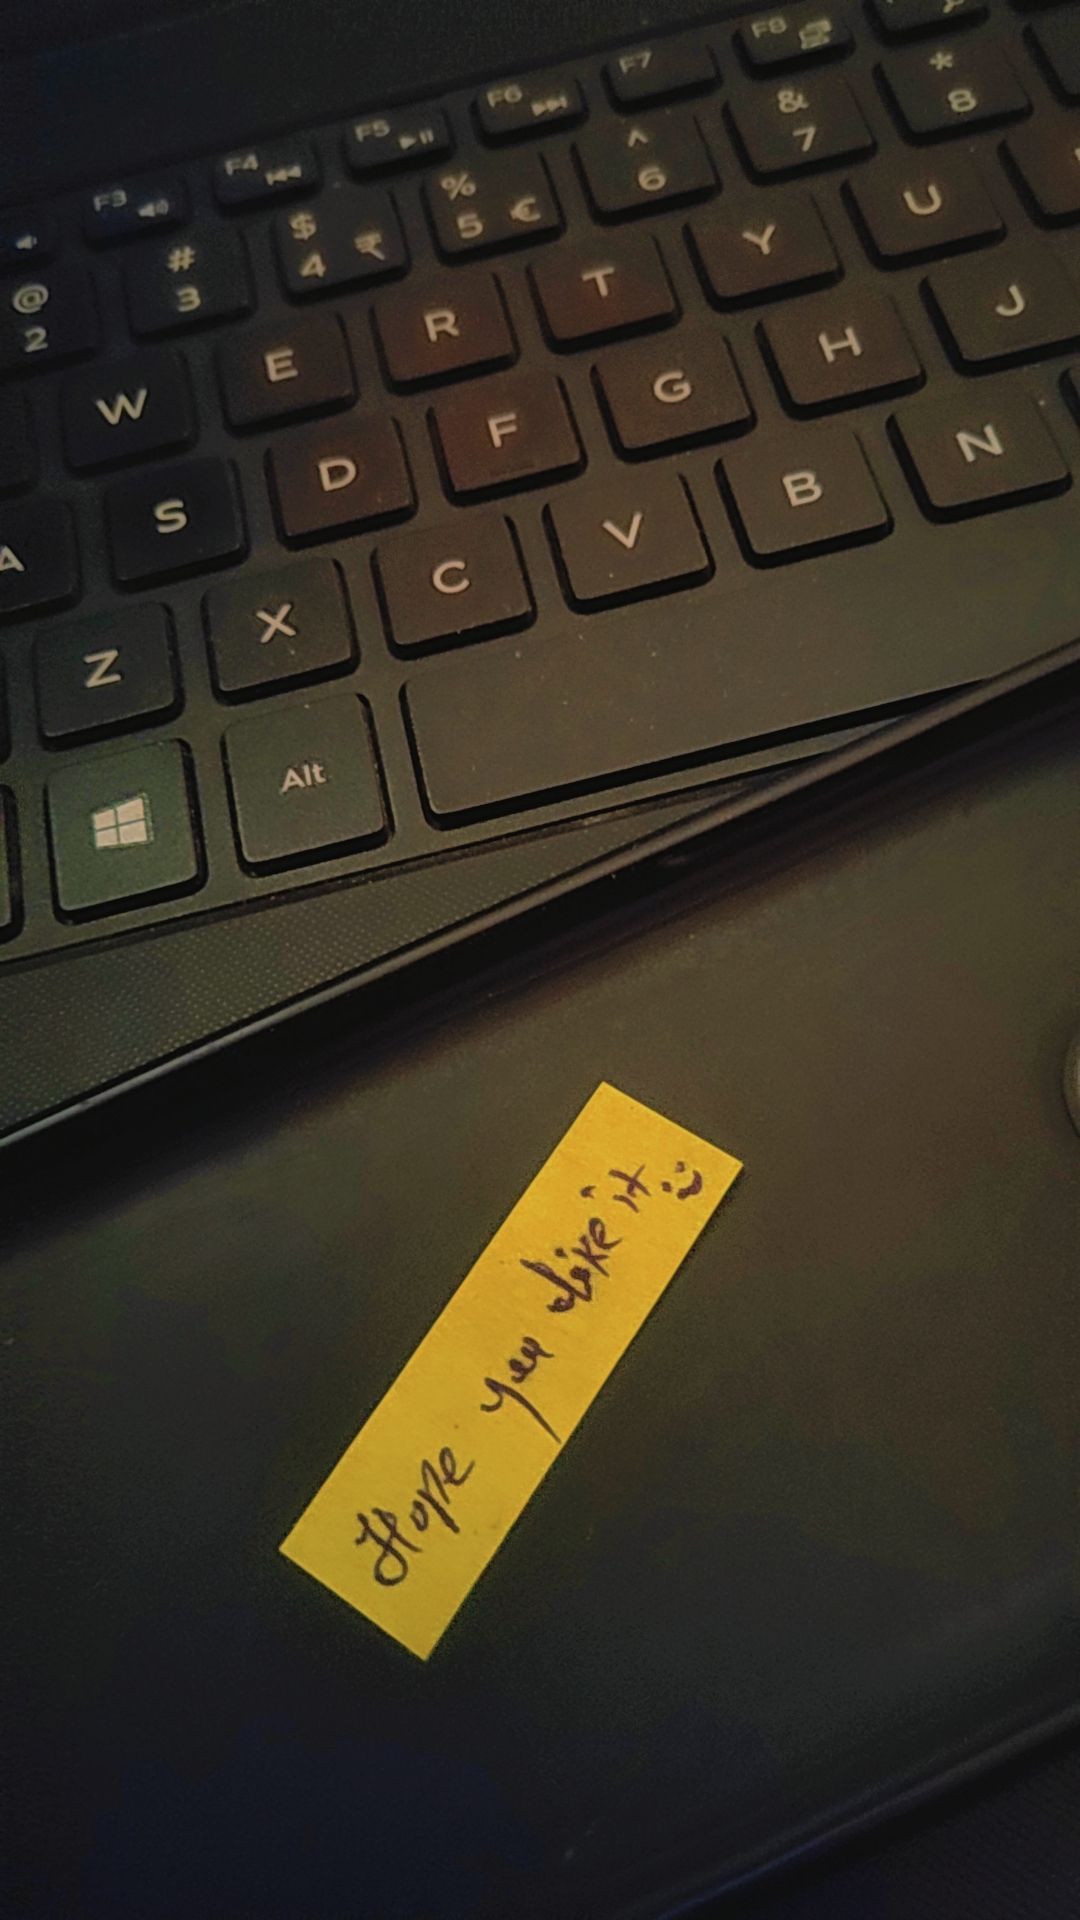 F3 F4 F5 F6 F7 F8
@ # $ % ^ & *
2 3 4 ₹ 5 € 6 7 8
W E R T Y U
A S D F G H J
Z X C V B N
Alt
Hope you like it :)